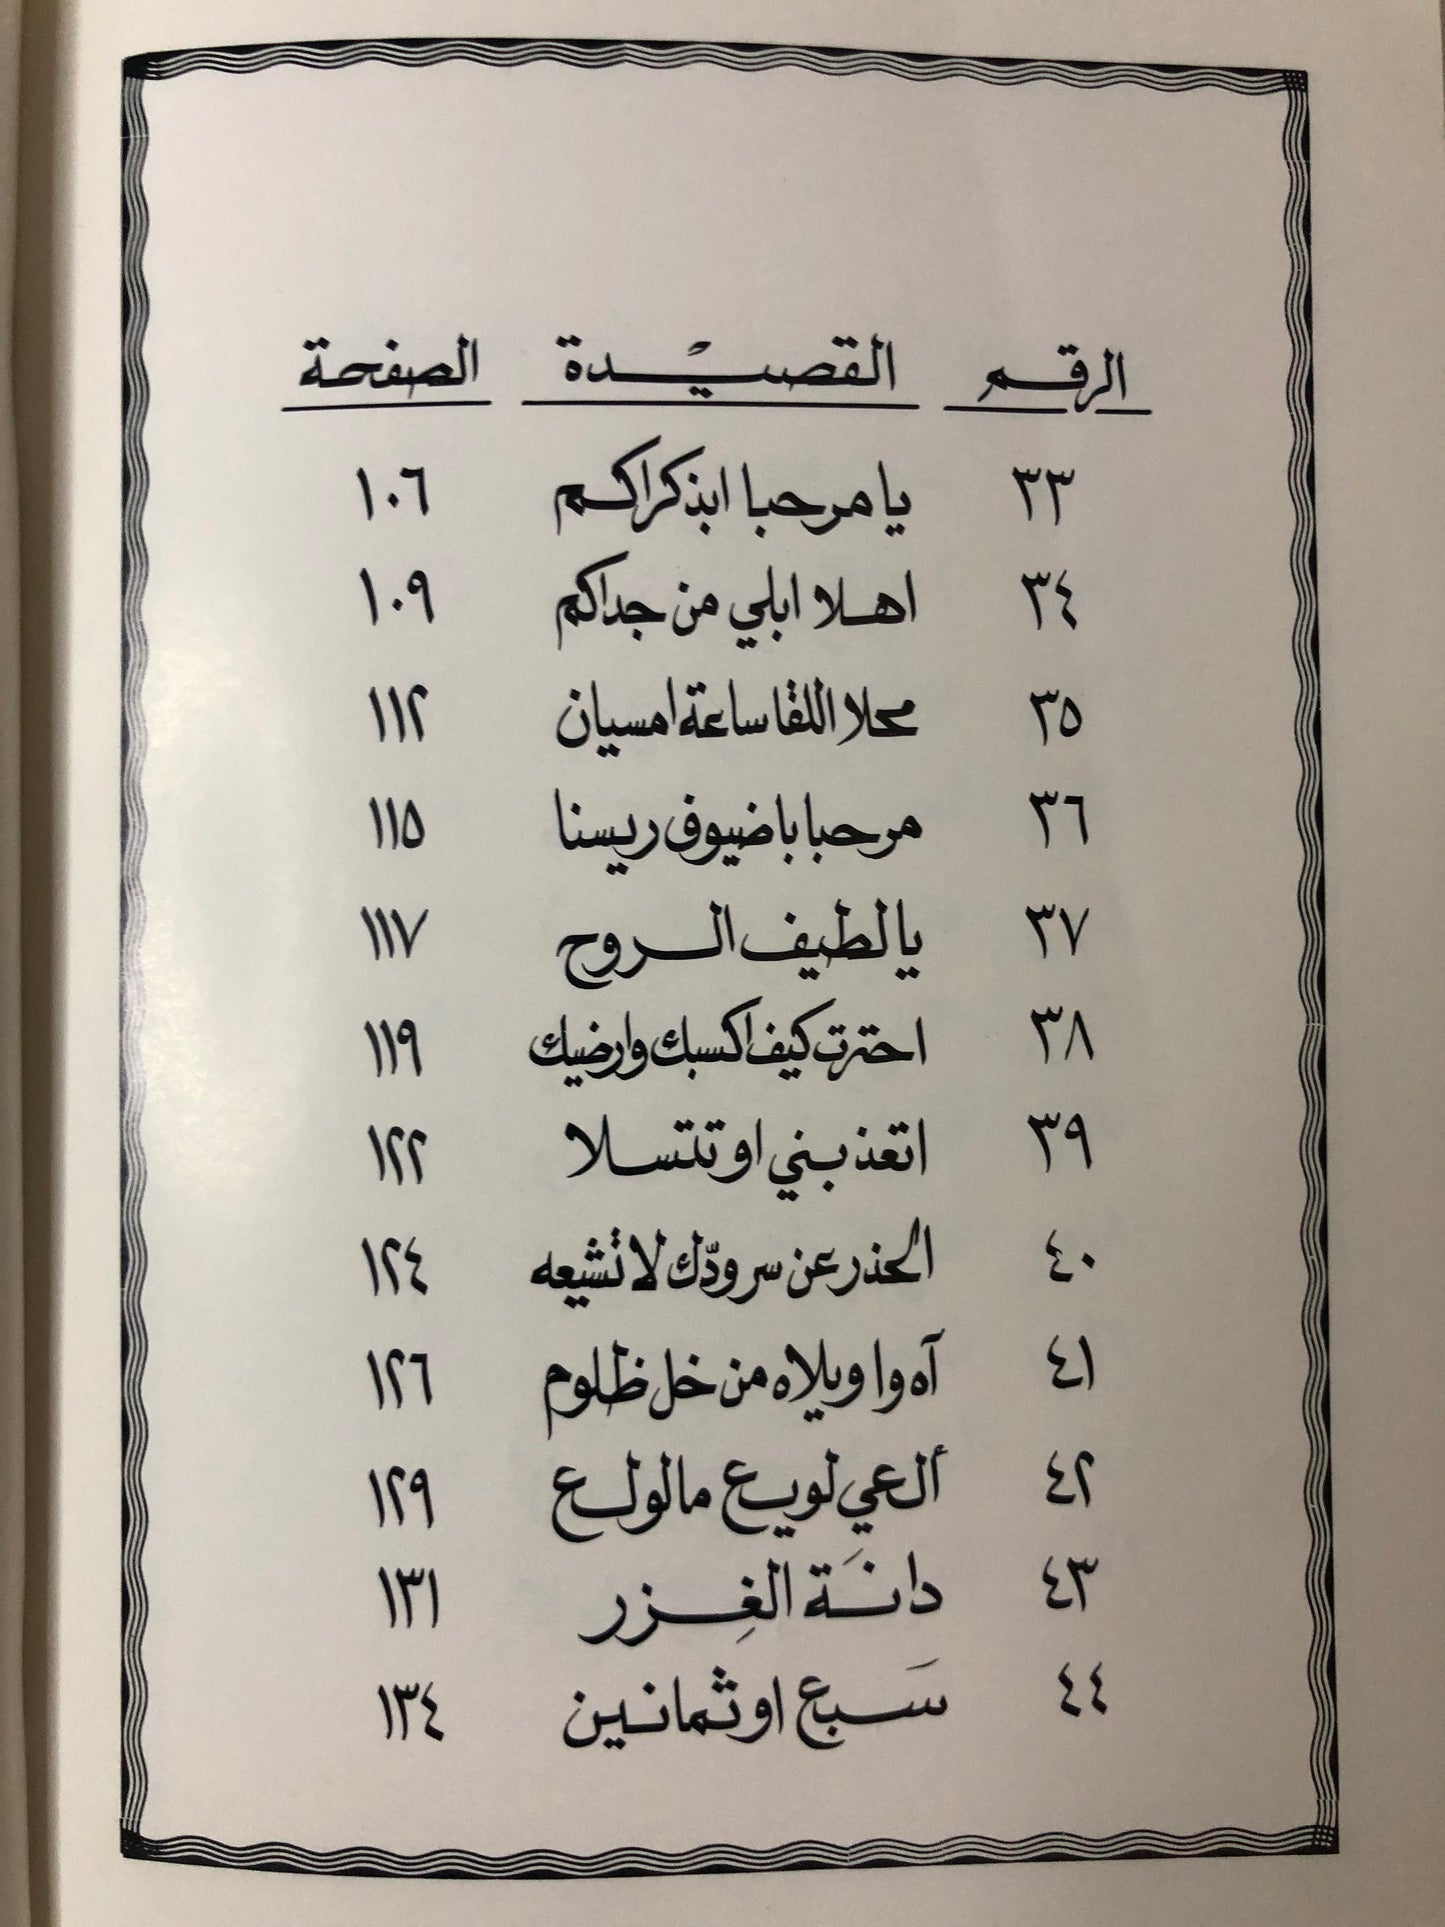 الرقم القصيدة الصفحة
٣٣ يا مرحبا ابذكراكم ١٠٦
٣٤ اهلا ابلي من جداكم ١٠٩
٣٥ محلا اللقا ساعة امسيان ١١٢
٣٦ مرحبا با ضيوف ريسنا ١١٥
٣٧ يا لطيف الروح ١١٧
٣٨ احترت كيف اكسبك وارضيك ١١٩
٣٩ اتعذبني او تتسلا ١٢٢
٤٠ الحذر عن سر ودّك لا تشيعه ١٢٤
٤١ آه وا ويلاه من خل ظلوم ١٢٦
٤٢ ألعي لويع مالولع ١٢٩
٤٣ دانَة الغِزر ١٣١
٤٤ سَبع او ثمانين ١٣٤